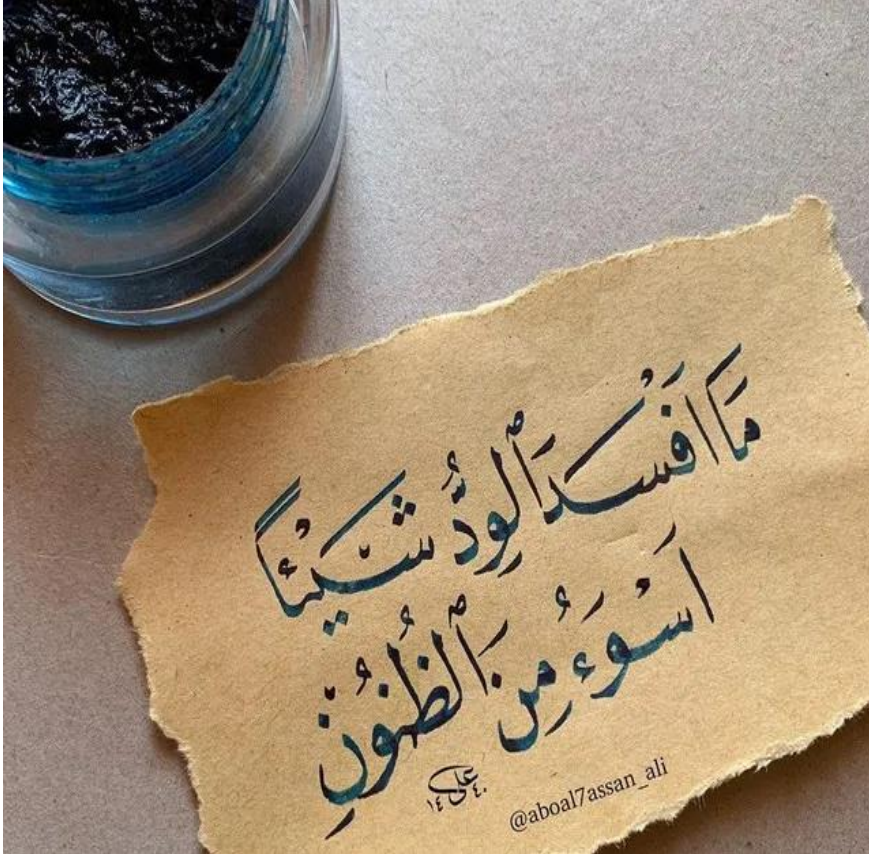 مَا أَفْسَدَ ٱلْوِدُّ شَيْئًا
اَسْوَءُ مِنَ ٱلظُنُونِ
علي ١٤٤٠
@aboal7assan_ali